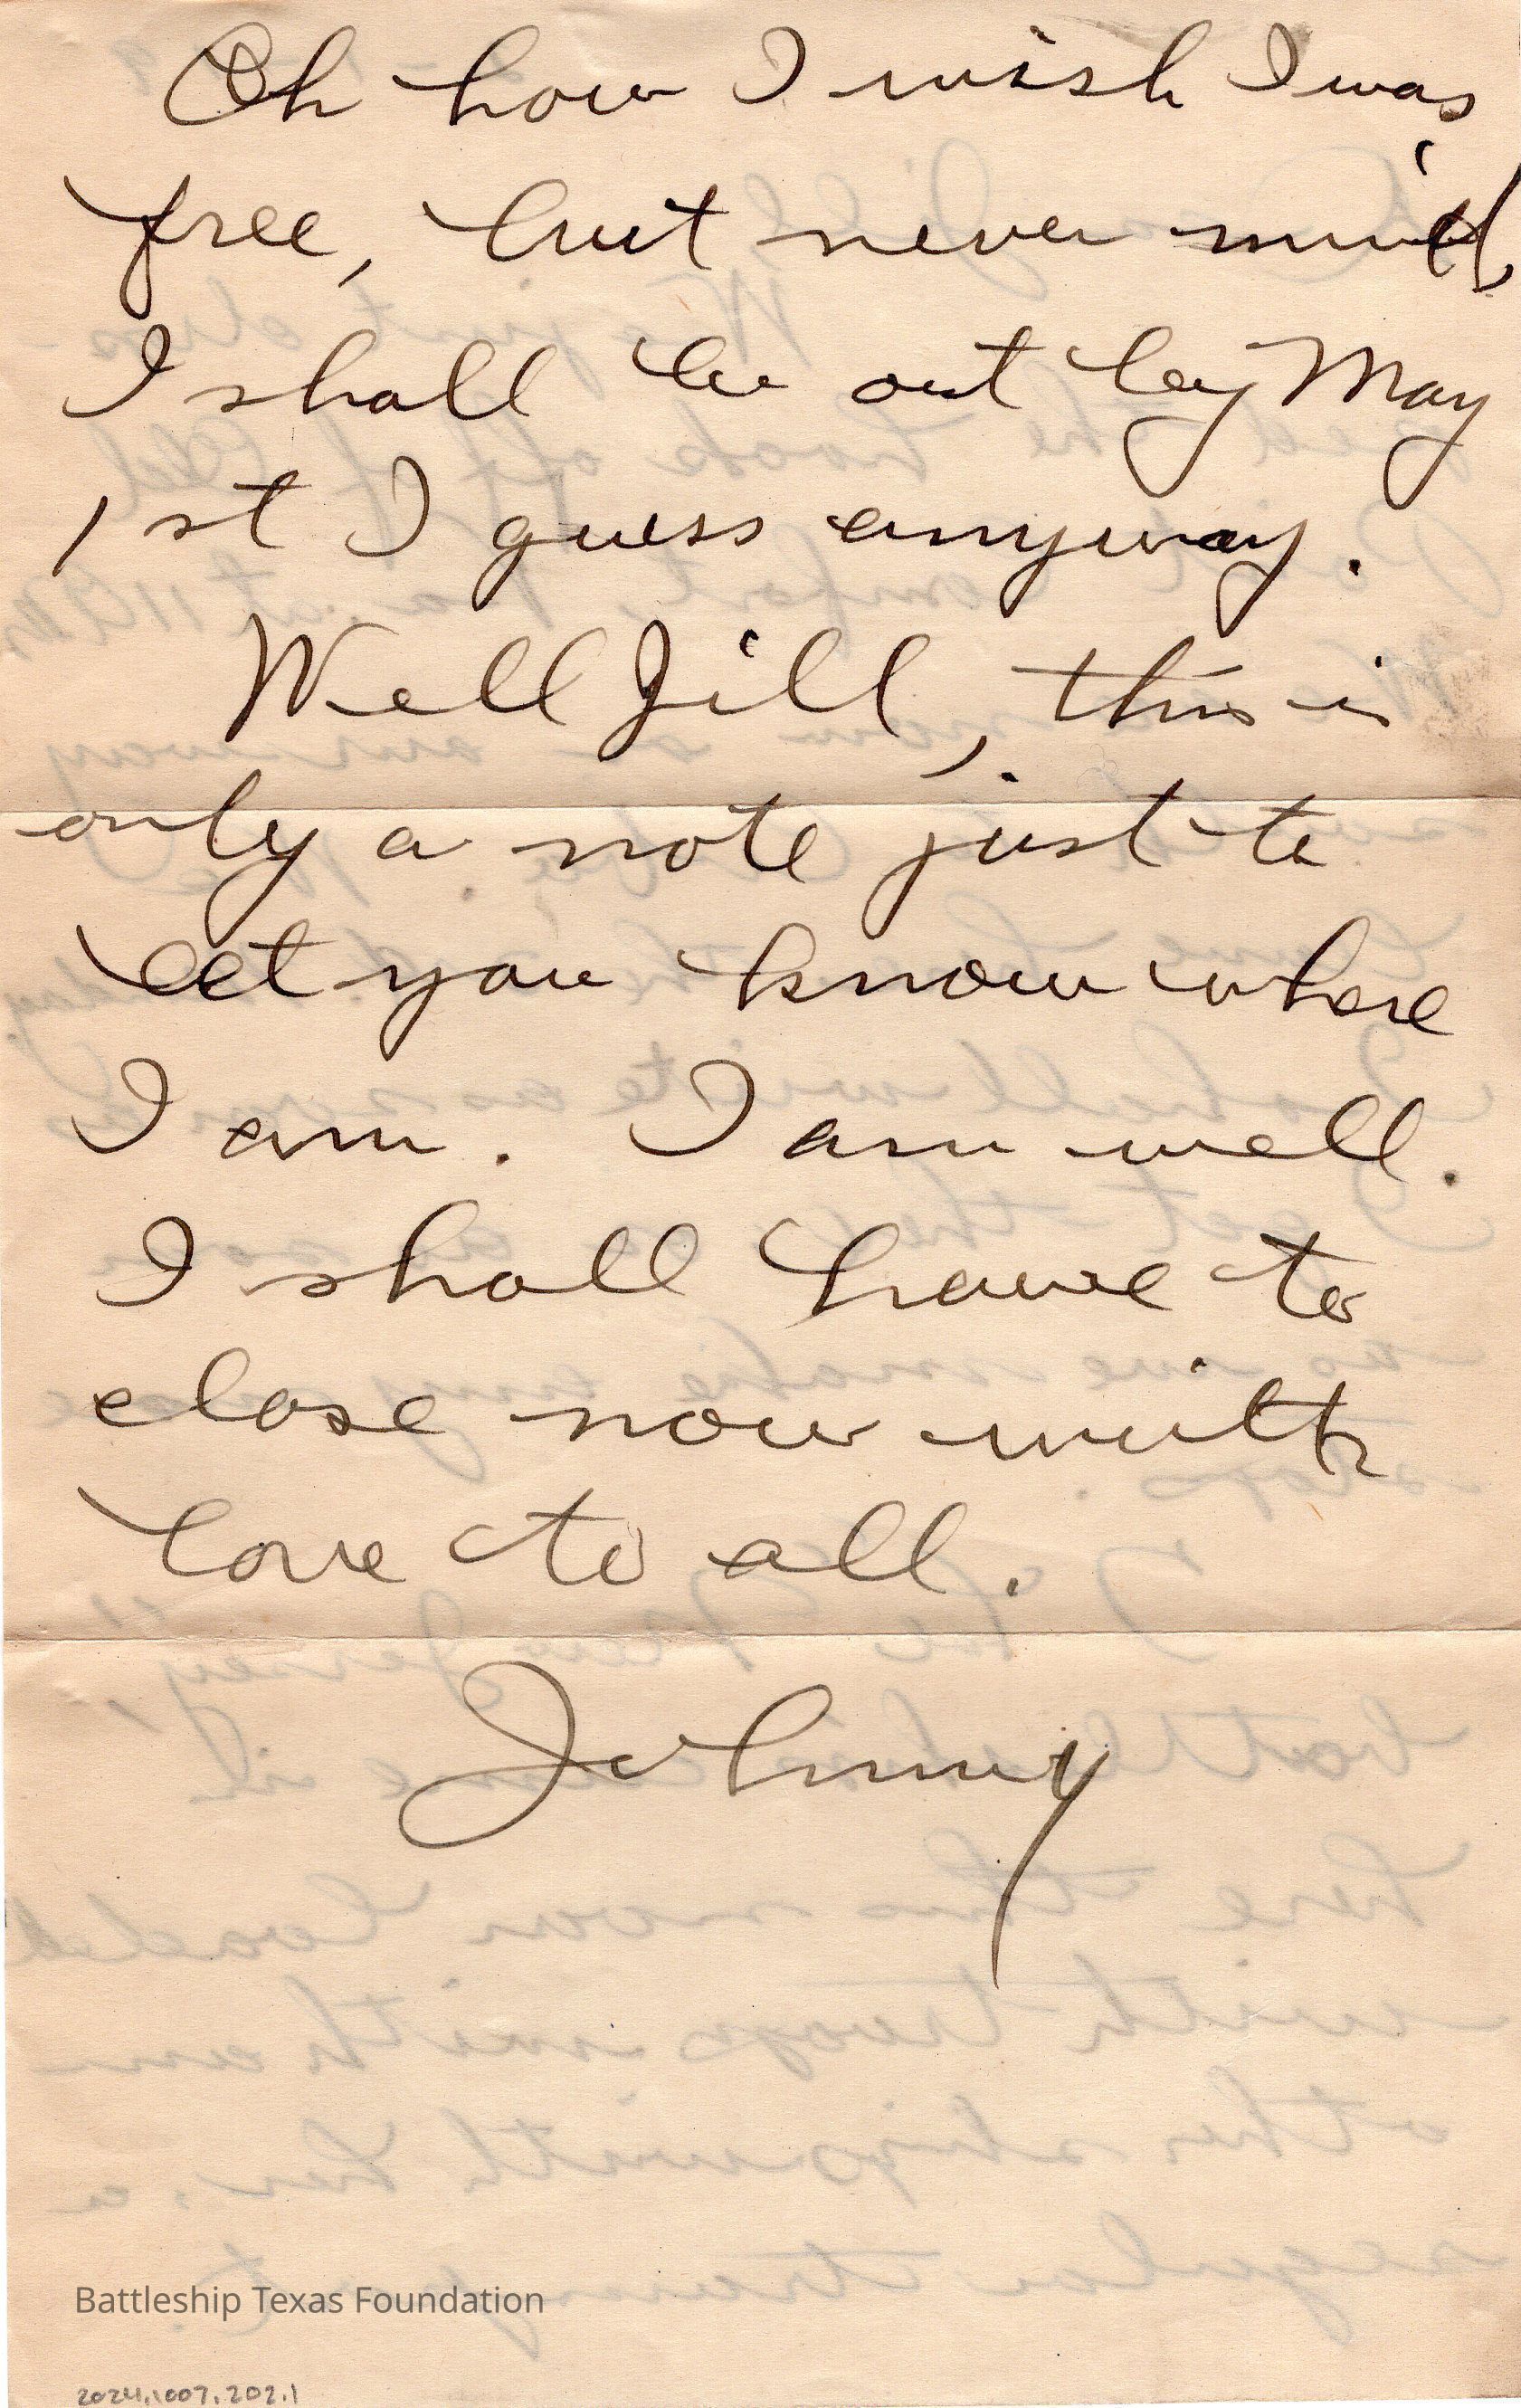 Oh how I wish I was
free, but never mind,
I shall be out by May
1st I guess anyway.
Well Jill, this is
only a note just to
let you know where
I am. I am well.
I shall have to
close now with
love to all.
Johnny
Battleship Texas Foundation
2024.1007.202.1